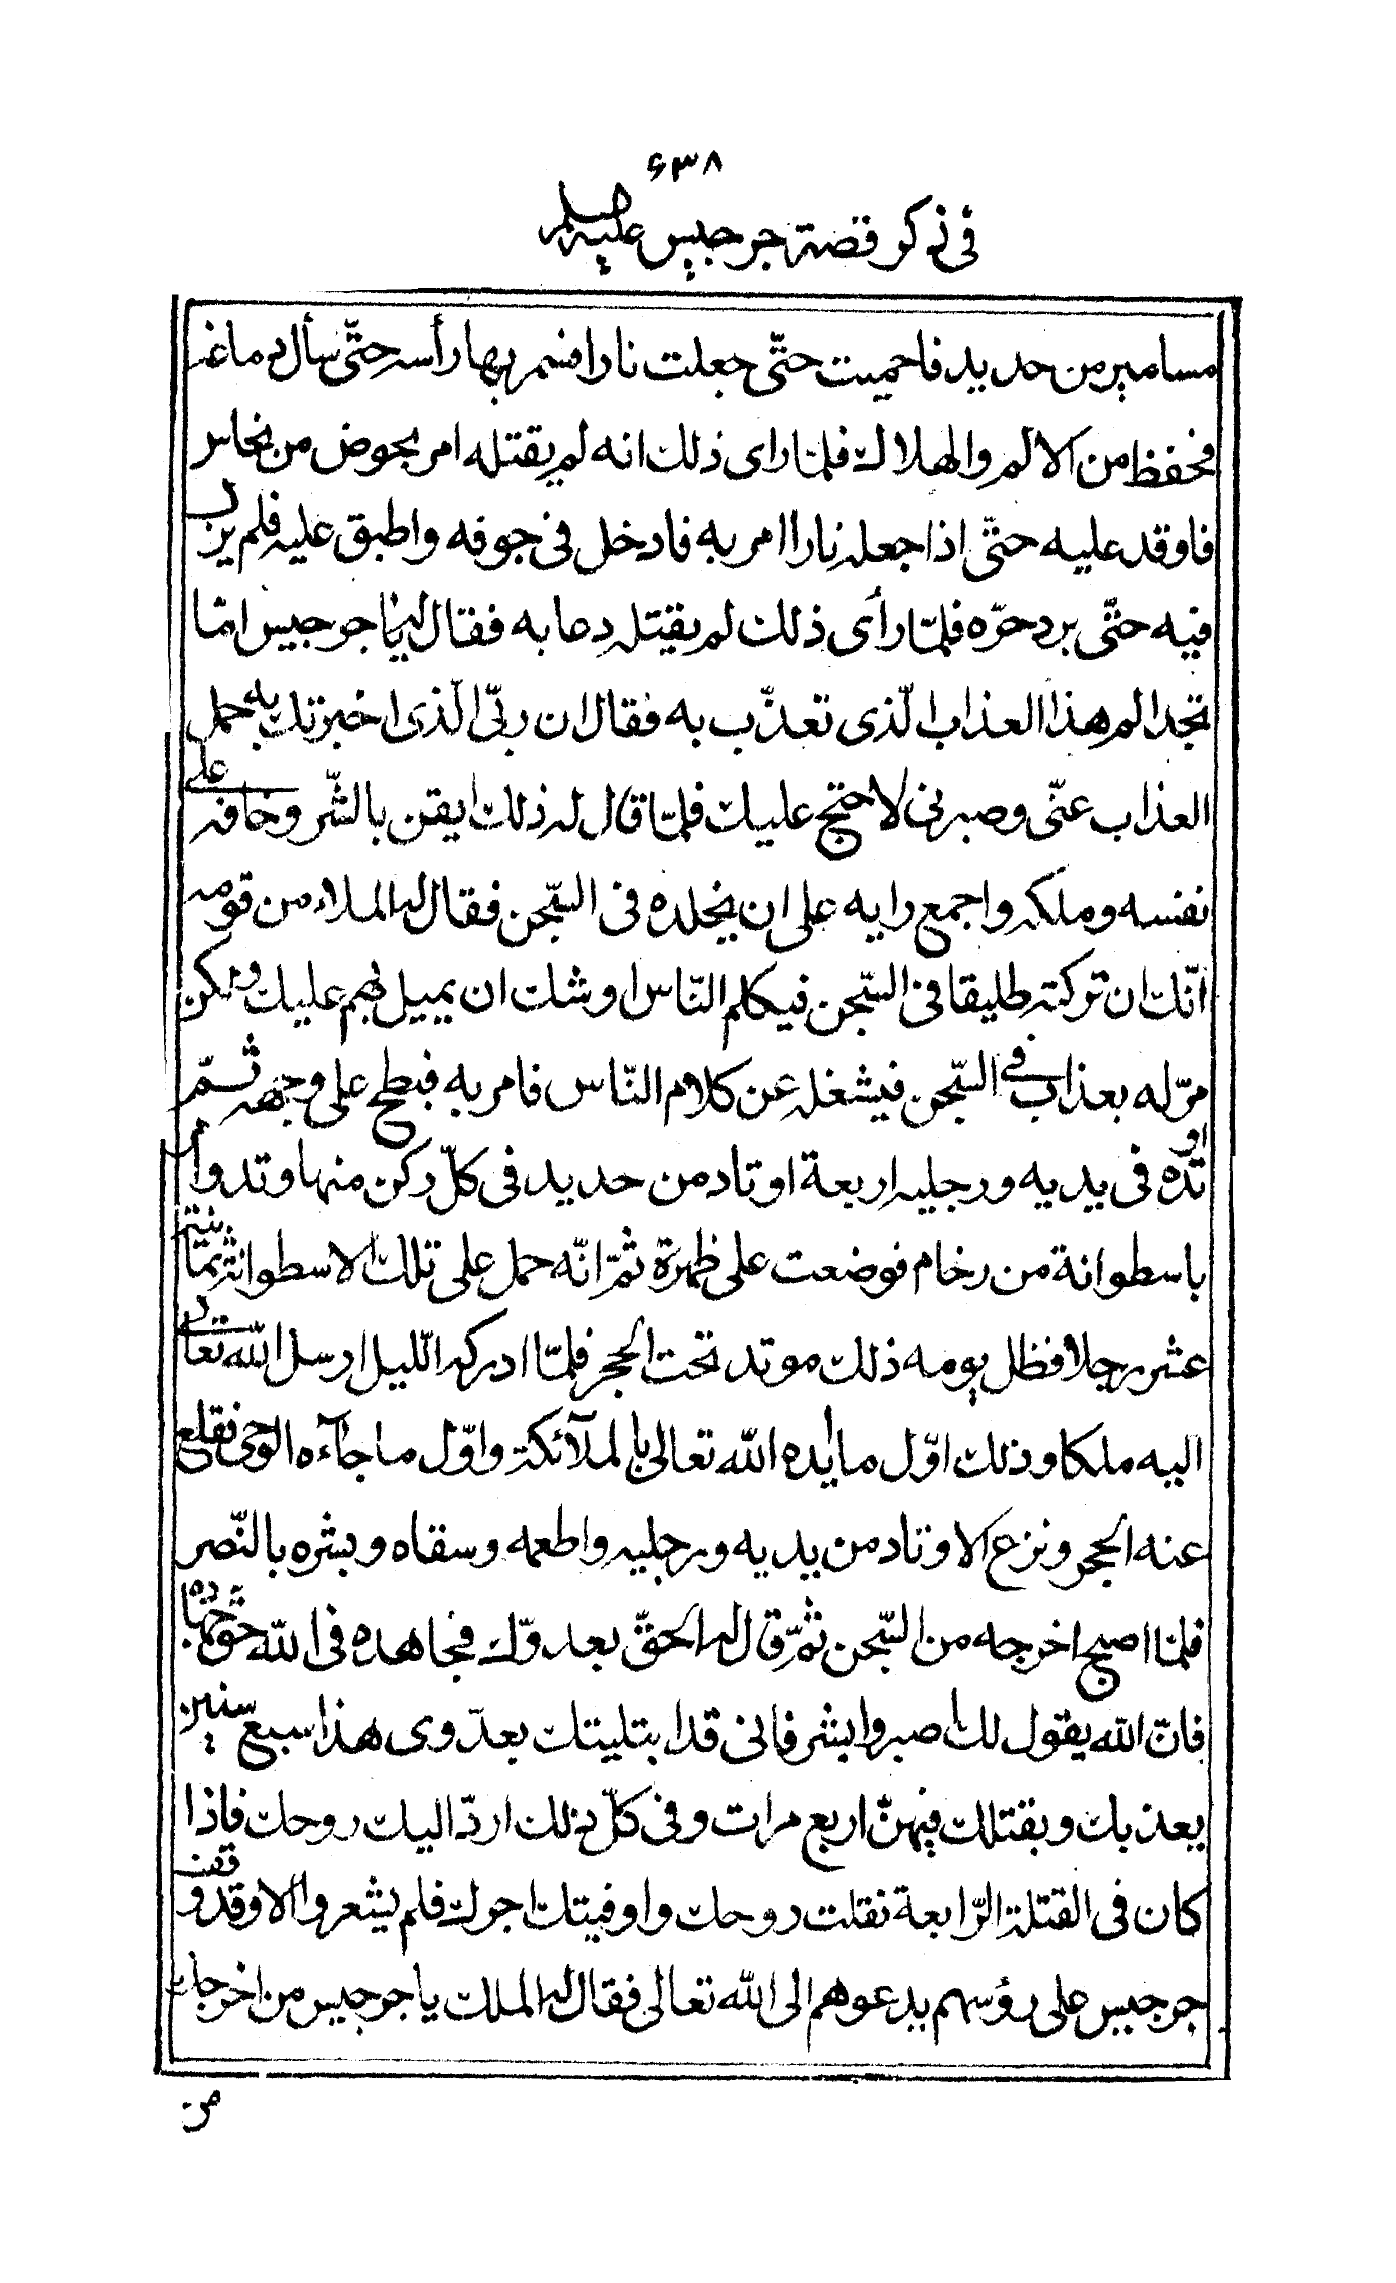 ۶۳۸
في ذكر قصة جرجيس عليه السلم
مسامير من حديد فاحميت حتّى جعلت نارا فسمر بها رأسه حتّى سأل دماغه
فحفظ من الالم والهلاك فلمّا راى ذلك انه لم يقتله امر بحوض من نحاس
فاوقد عليه حتّى اذا جعله نارا امر به فادخل في جوفه واطبق عليه فلم يزل
فيه حتّى برد حرّه فلمّا رأى ذلك لم يقتله دعا به فقال له يا جرجيس امّا
تجد الم هذا العذاب الّذى تعذّب به فقال ان ربّى الّذى اخبرتك به حمل
العذاب عنّى وصبرنى لاحتج عليك فلمّا قال له ذلك ايقن بالشّر وخافه على
نفسه وملكه واجمع رايه على ان يخلده فى السّجن فقال له الملاء من قومه
انّك ان تركته طليقا فى السّجن فيكلم النّاس اوشك ان يميل بهم عليك ولكن
مرّ له بعذاب فى السّجن فيشغله عن كلام النّاس فامر به فبطح على وجهه ثمّ
اوتده فى يديه ورجليه اربعة اوتاد من حديد فى كلّ ركن منها وتد وامر
باسطوانة من رخام فوضعت على ظهرة ثمّ انّه حمل على تلك الاسطوانة ثمانية
عشر رجلا فظل يومه ذلك موتد تحت الحجر فلمّا ادركه اللّيل ارسل الله تعالى
اليه ملكا وذلك اوّل ما ايده الله تعالى بالملآئكة واوّل ما جآءه الوحى فقلع
عنه الحجر ونزع الاوتاد من يديه ورجليه واطعمه وسقاه وبشره بالنّصر
فلمّا اصبح اخرجه من السّجن ثمّ قال له الحقّ بعدوّك فجاهده فى الله حقّ جهاده
فانّ الله يقول لك اصبر وابشر فانى قد ابتليتك بعدّوى هذا سبع سنين
يعذبك ويقتلك فيهنّ اربع مرات وفى كلّ ذلك اردّ اليك روحك فاذا
كان فى القتلة الرّابعة نقلت روحك واوفيتك اجرك فلم يشعروا الا وقد وقف
جرجيس على رؤسهم يدعوهم الى الله تعالى فقال له الملك يا جرجيس من اخرجك
من